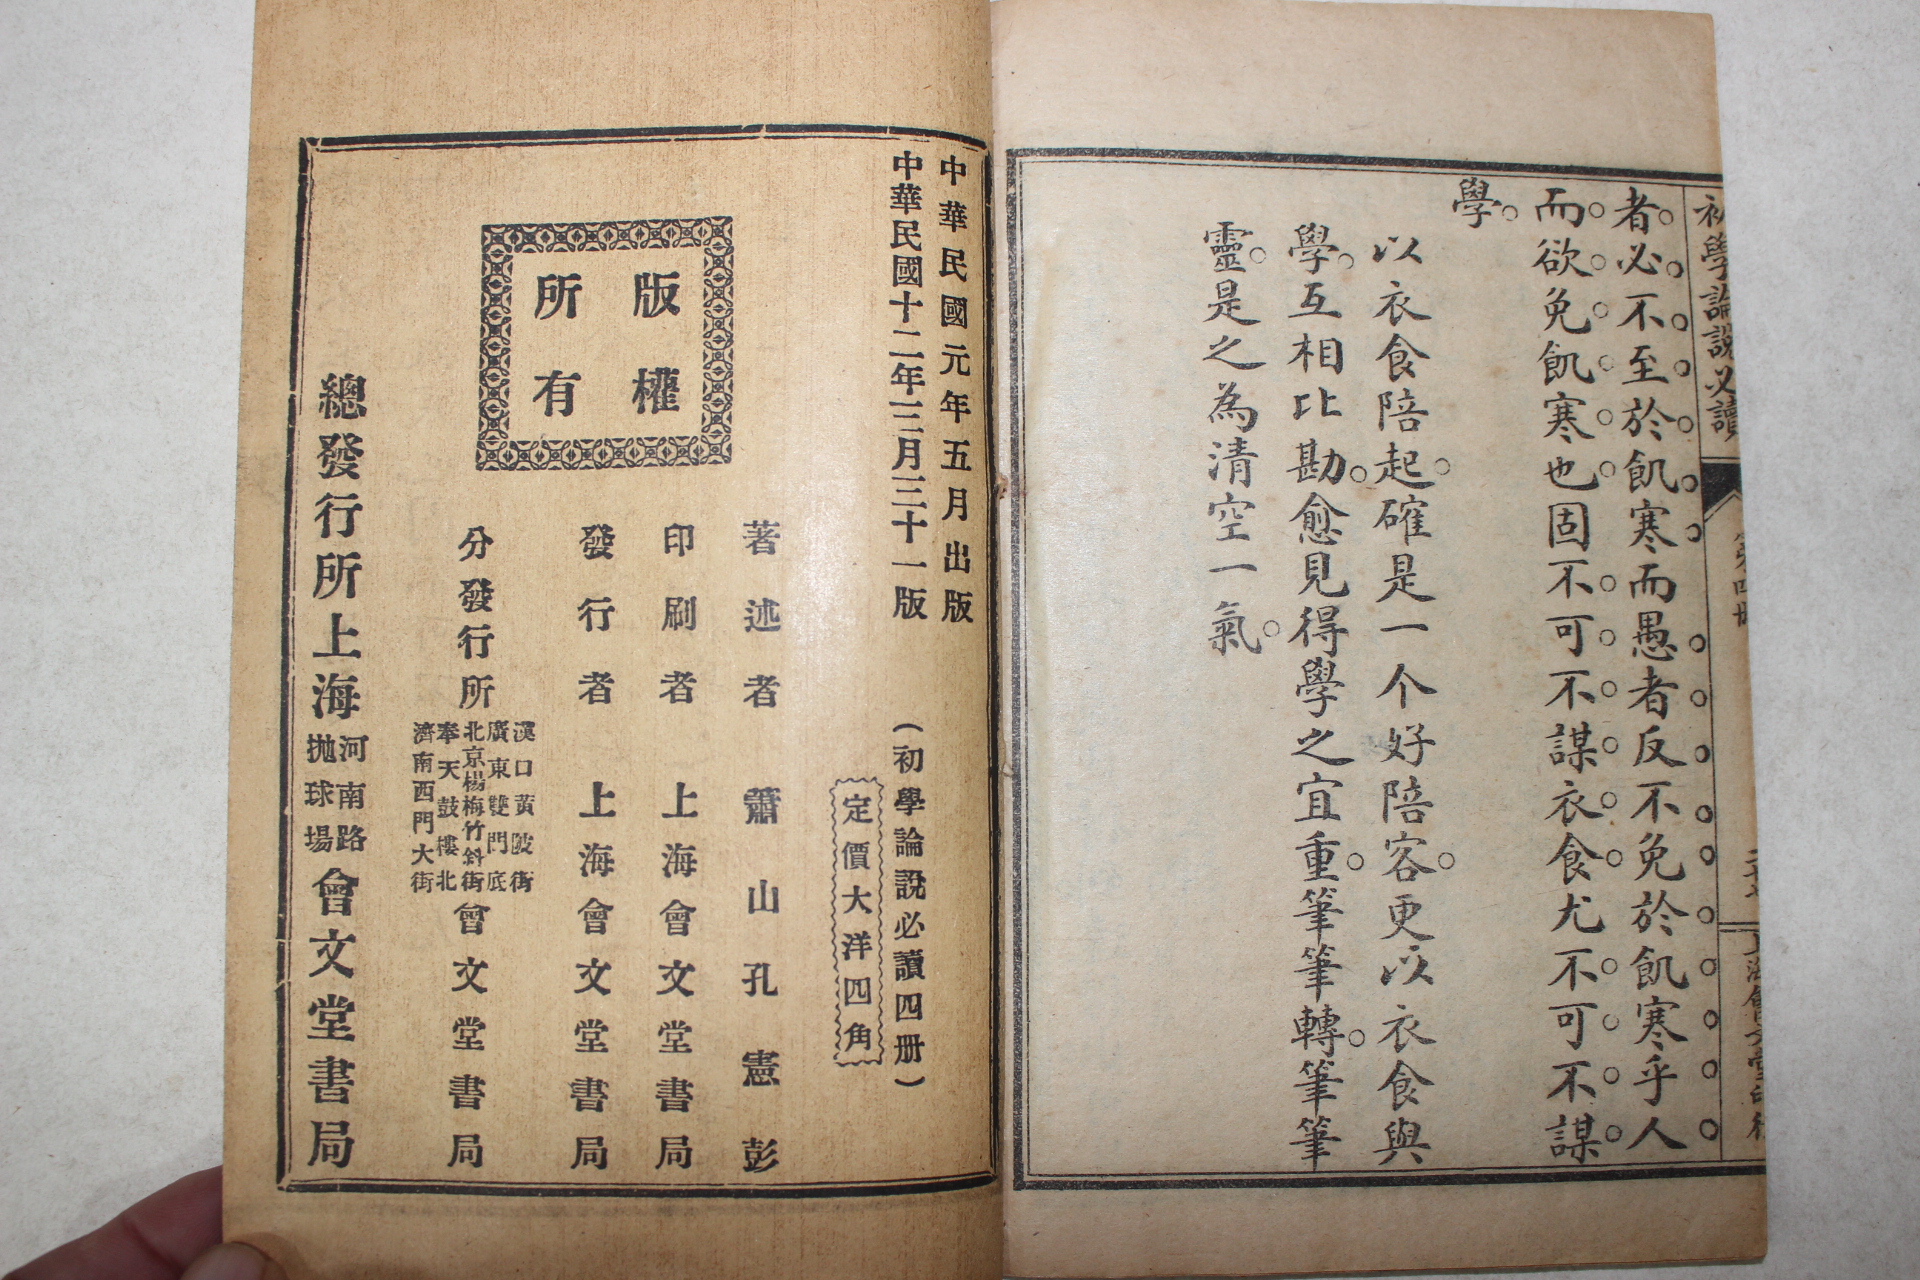 初學論說必讀
第四册
者必不至於飢寒而愚者反不免於飢寒乎人
而欲免飢寒也固不可不謀衣食尤不可不謀
學
以衣食陪起確是一个好陪客更以衣食與
學互相比勘愈見得學之宜重筆筆轉筆筆
靈是之為清空一氣
中華民國元年五月出版
中華民國十二年三月三十一版
(初學論說必讀四册)
定價大洋四角
版權
所有
著述者 蕭山孔憲彭
印刷者 上海會文堂書局
發行者 上海會文堂書局
分發行所
漢口黃陂街
廣東雙門底
北京楊梅竹斜街
奉天鼓樓北
濟南西門大街
會文堂書局
總發行所上海
河南路
拋球場
會文堂書局